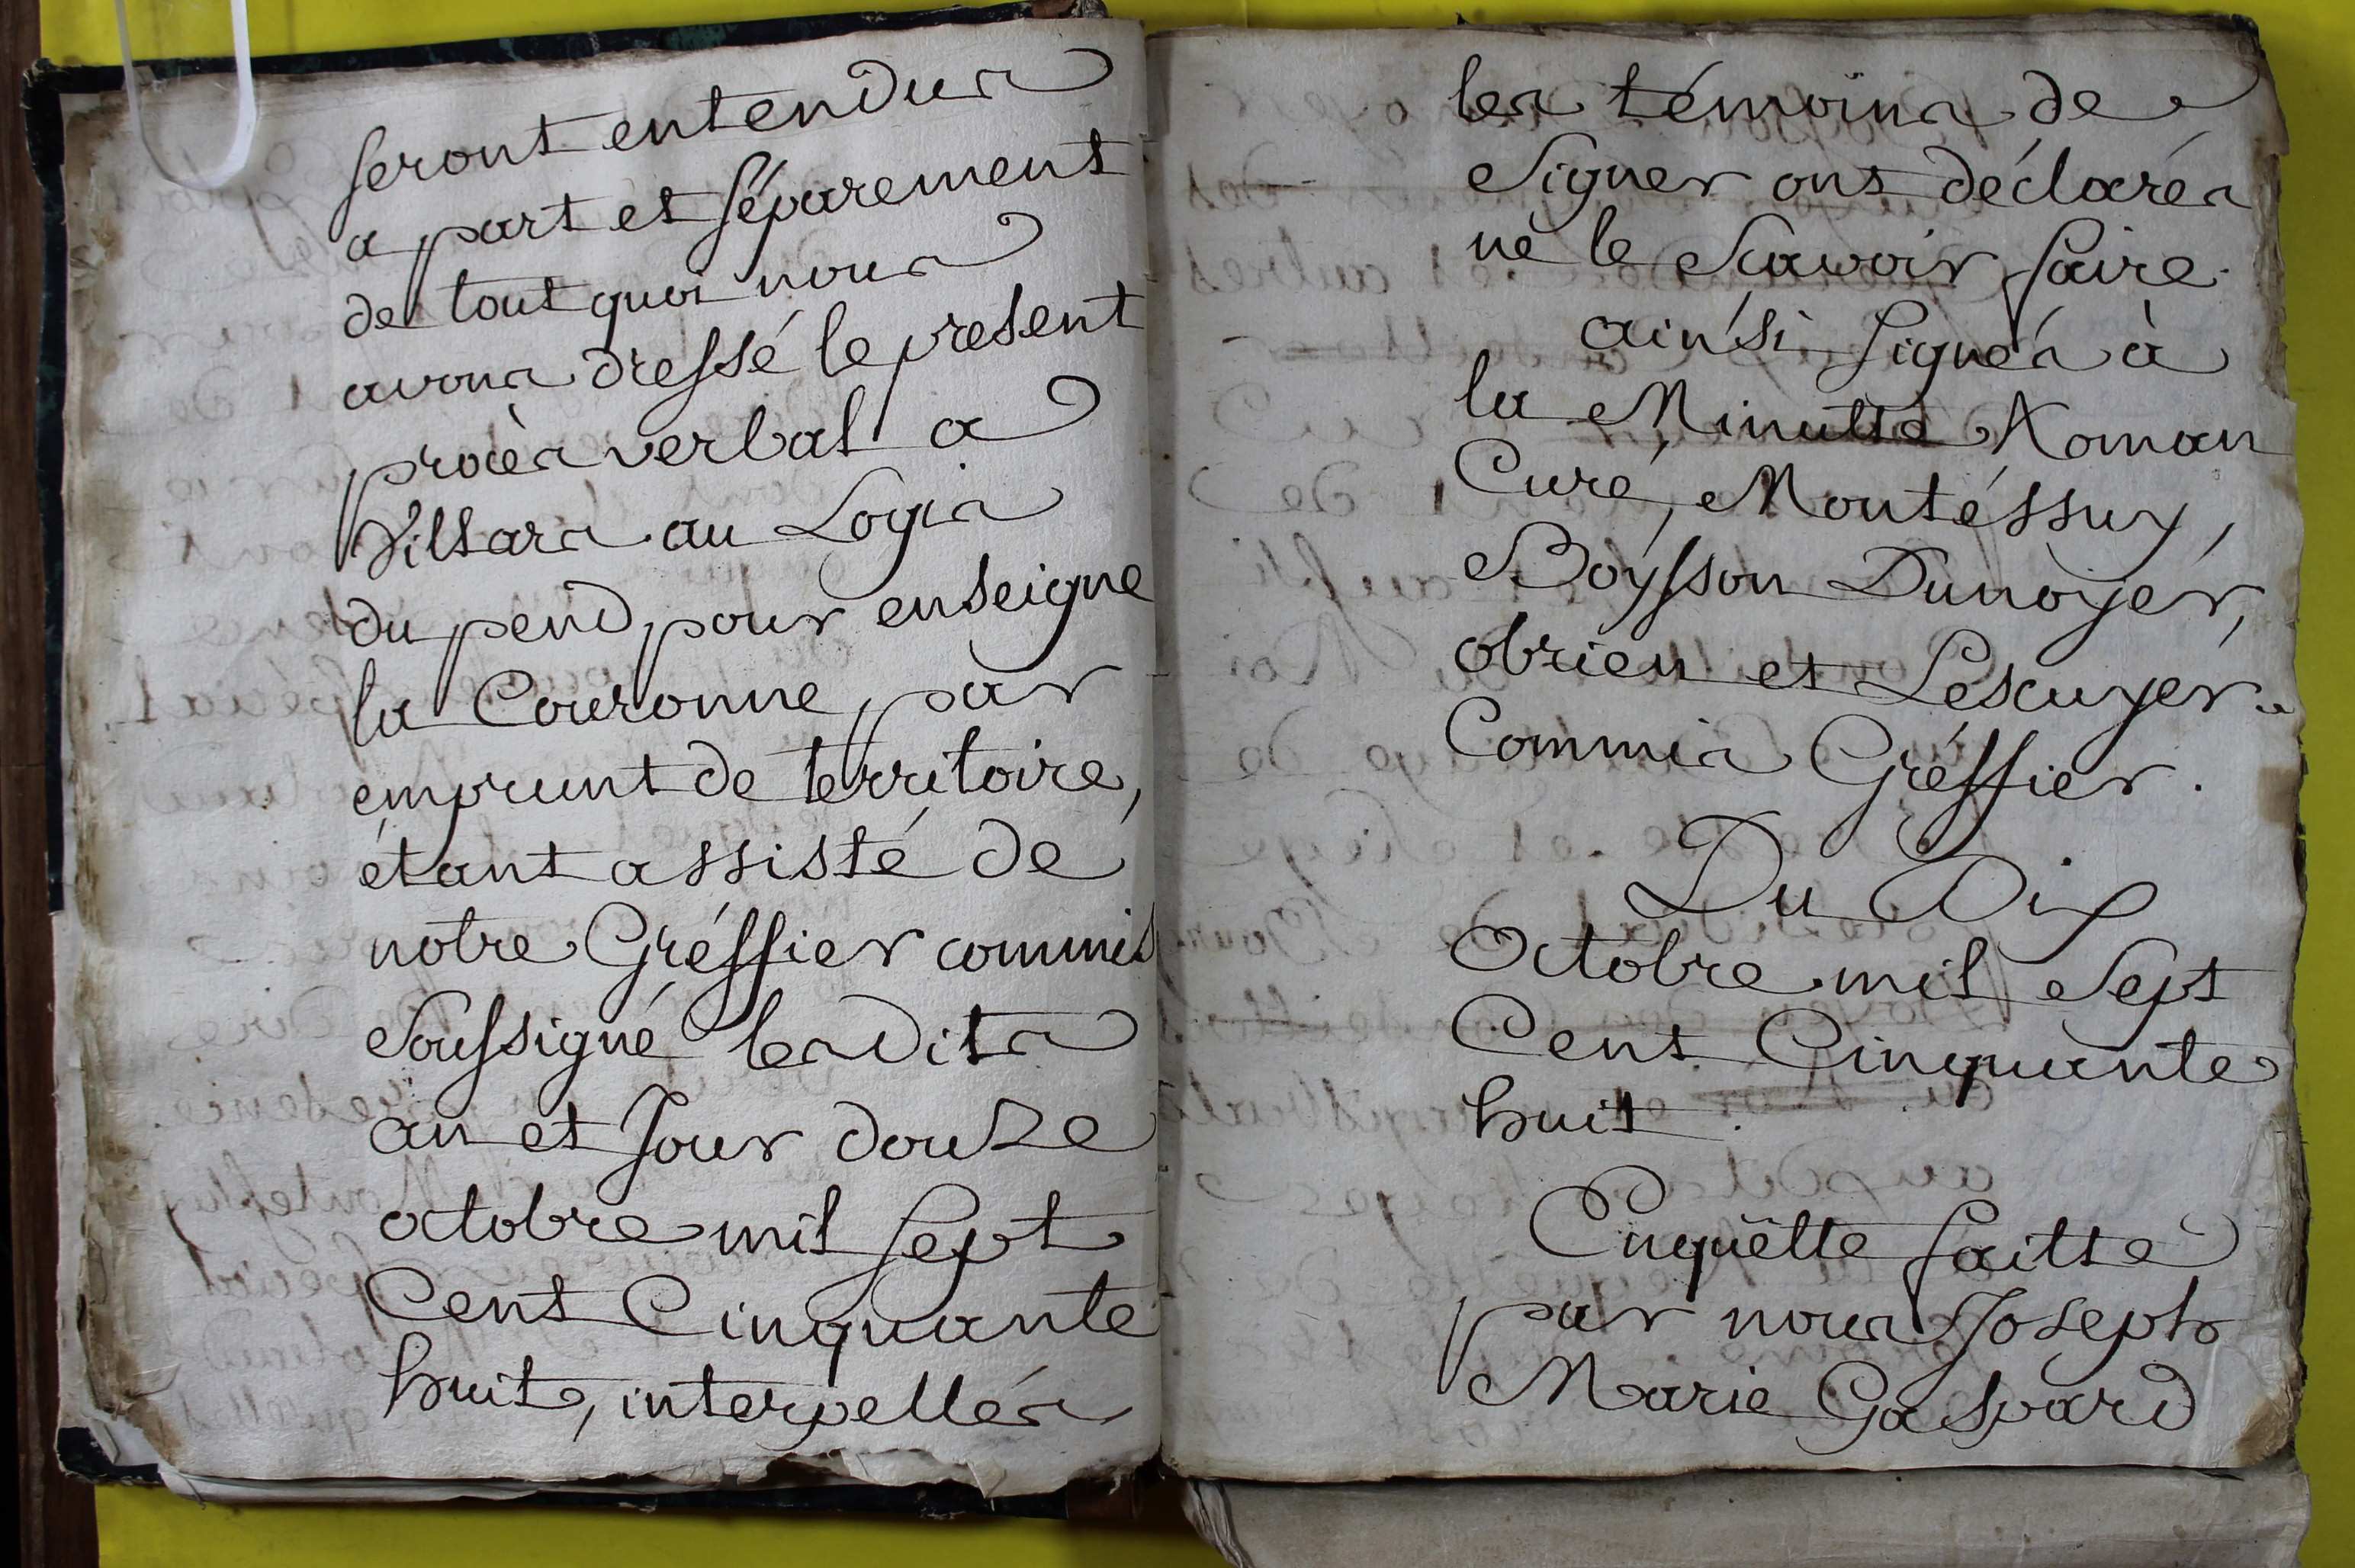 seront entendus
a part et séparement
de tout quoi nous
avons dressé le present
procès verbal a
Villars au Logis
du pend pour enseigne
la Couronne, par
emprunt de territoire,
étant assisté de
notre Gréffier commis
Soussigné lesdits
an et Jour douze
octobre mil sept
Cent Cinquante
huit, interpellés
les témoins de
Signer ont déclarés
ne le Scavoir faire.
ainsi signés à
la Minutte Roman
Curé, Montéssuy,
Boysson Dunoyer,
obrien et Lescuyer
Commis Gréffier.
Du Dix
Octobre mil Sept
Cent Cinquante
huit.
Enquëtte faitte
par nous Joseph
Marie Gaspard